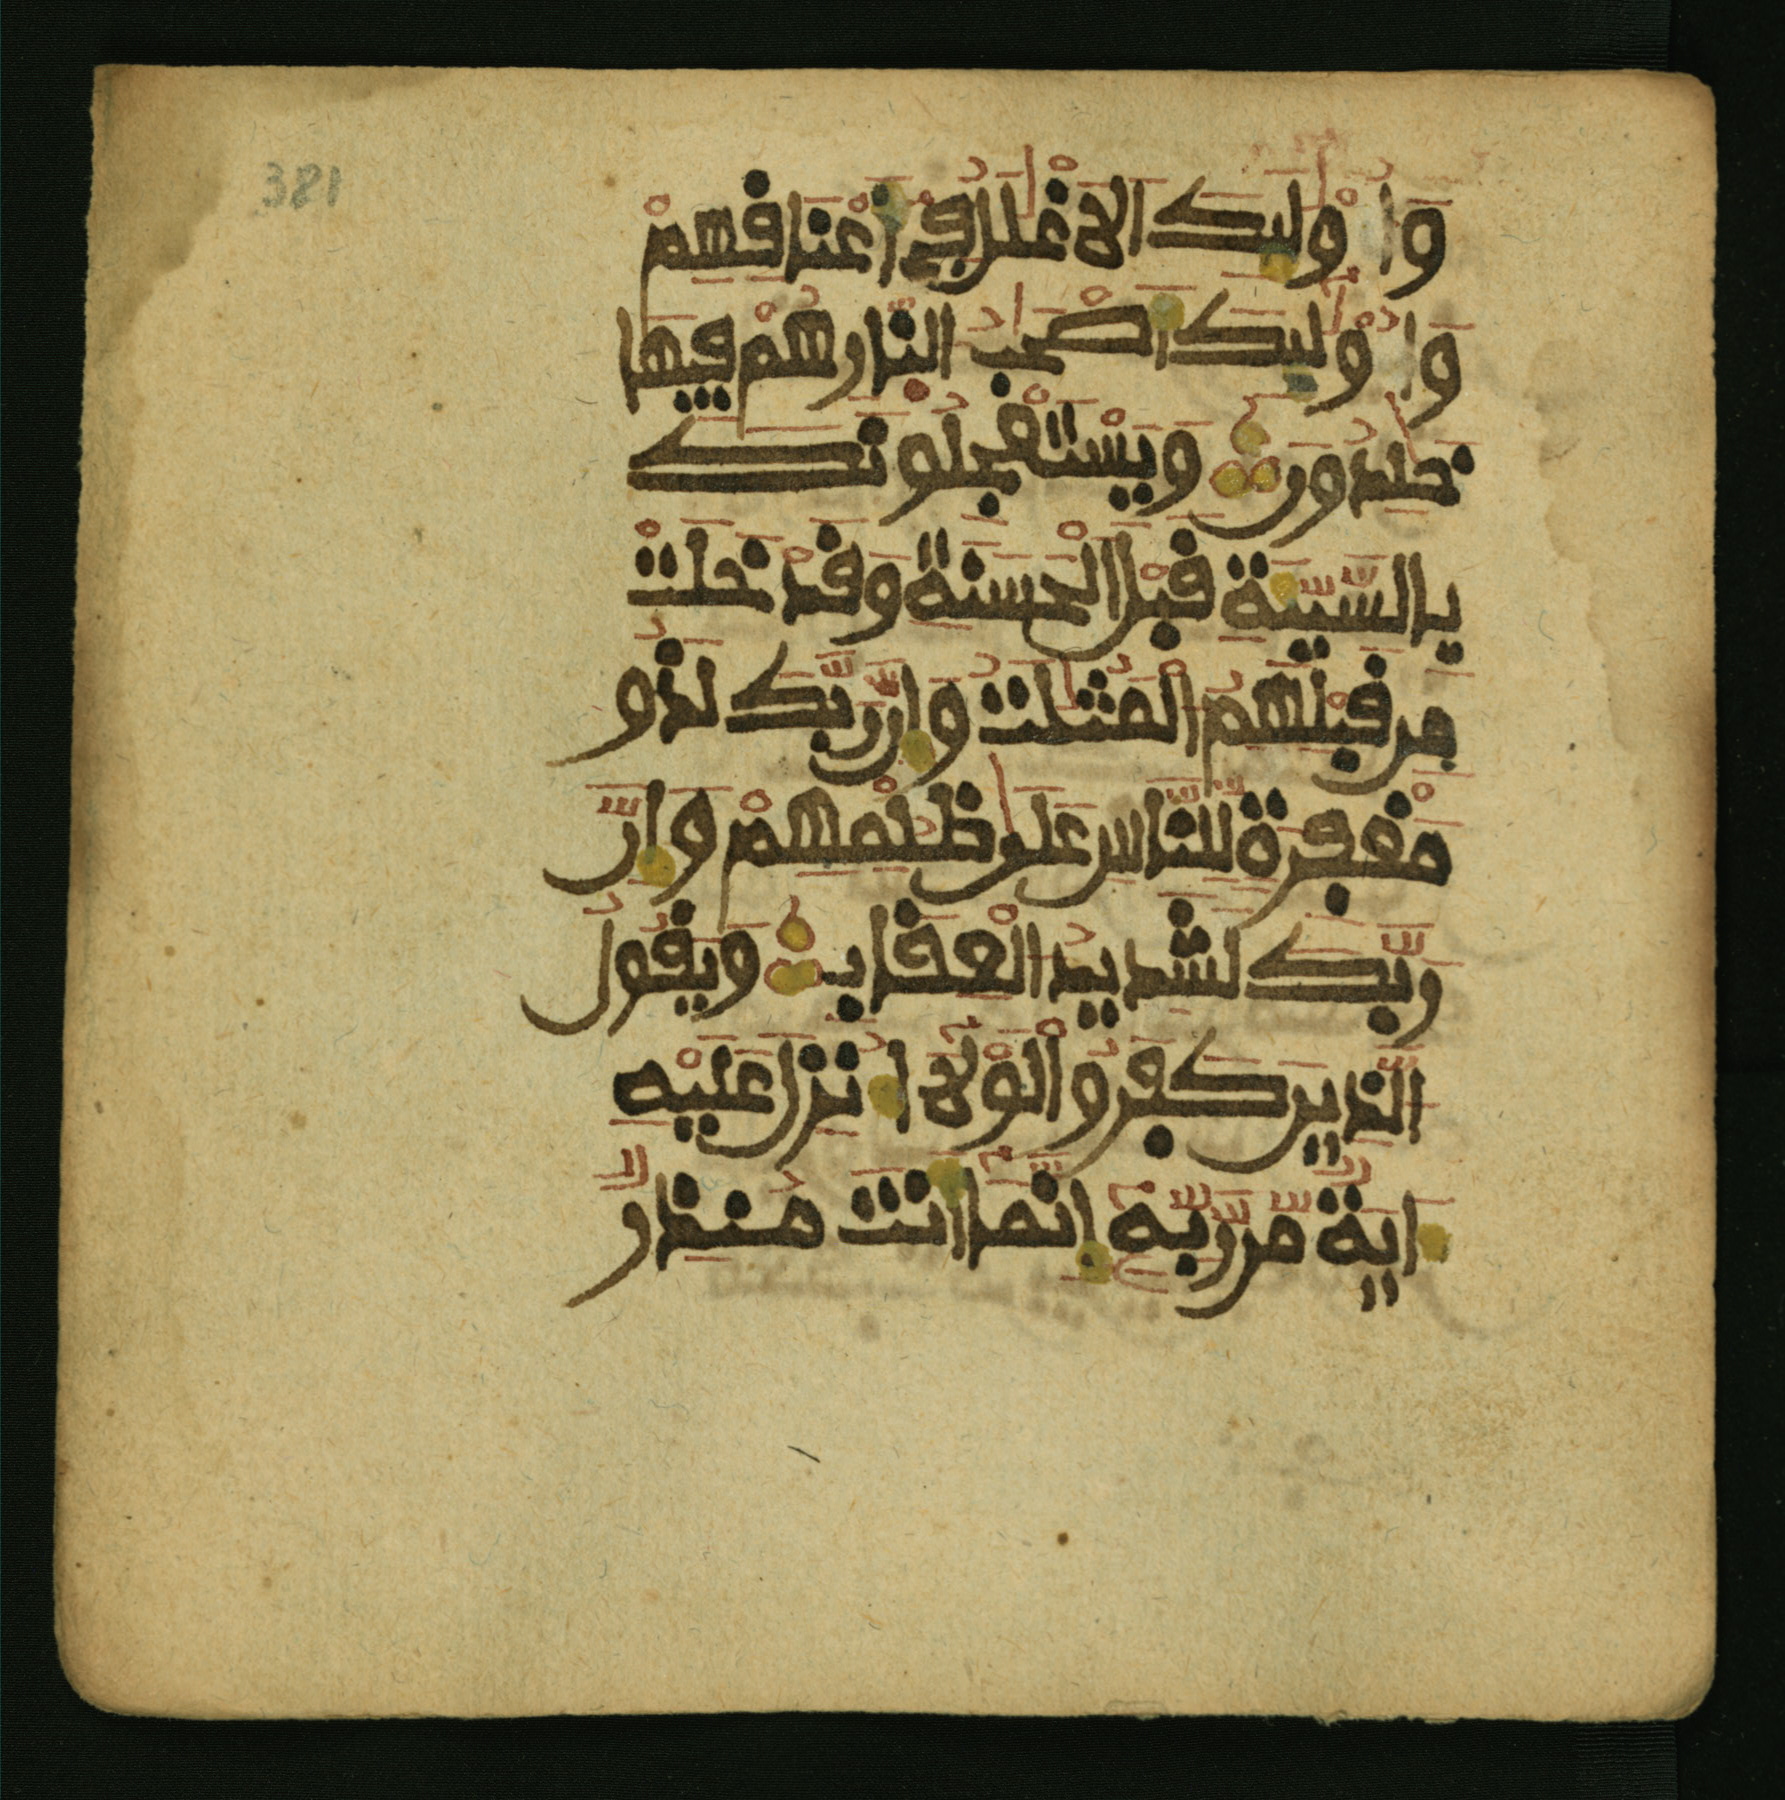 381
وَأُوْلَٰٓئِكَ اَ۬لَاغْلَٰلُ فِےٓ أَعْنَاقِهِمْ
وَأُوْلَٰٓئِكَ أَصْحَٰبُ اُ۬لنّ۪ارِ هُمْ فِيهَا
خَٰلِدُونَ وَيَسْتَعْجِلُونَكَ
بِالسَّيِّئَةِ قَبْلَ اَ۬لْحَسَنَةِ وَقَدْ خَلَتْ
مِن قَبْلِهِمُ اُ۬لْمَثُلَٰتُ وَإِنَّ رَبَّكَ لَذُو
مَغْفِرَةٍ لِّلنَّاسِ عَلَىٰ ظُلْمِهِمْ وَإِنَّ
رَبَّكَ لَشَدِيدُ اُ۬لْعِقَابِ وَيَقُولُ
اُ۬لذِينَ كَفَرُواْ لَوْلَآ أُنزِلَ عَلَيْهِ
ءَايَةٌ مِّن رَّبِّهِۦٓ إِنَّمَآ أَنتَ مُنذِرٌ